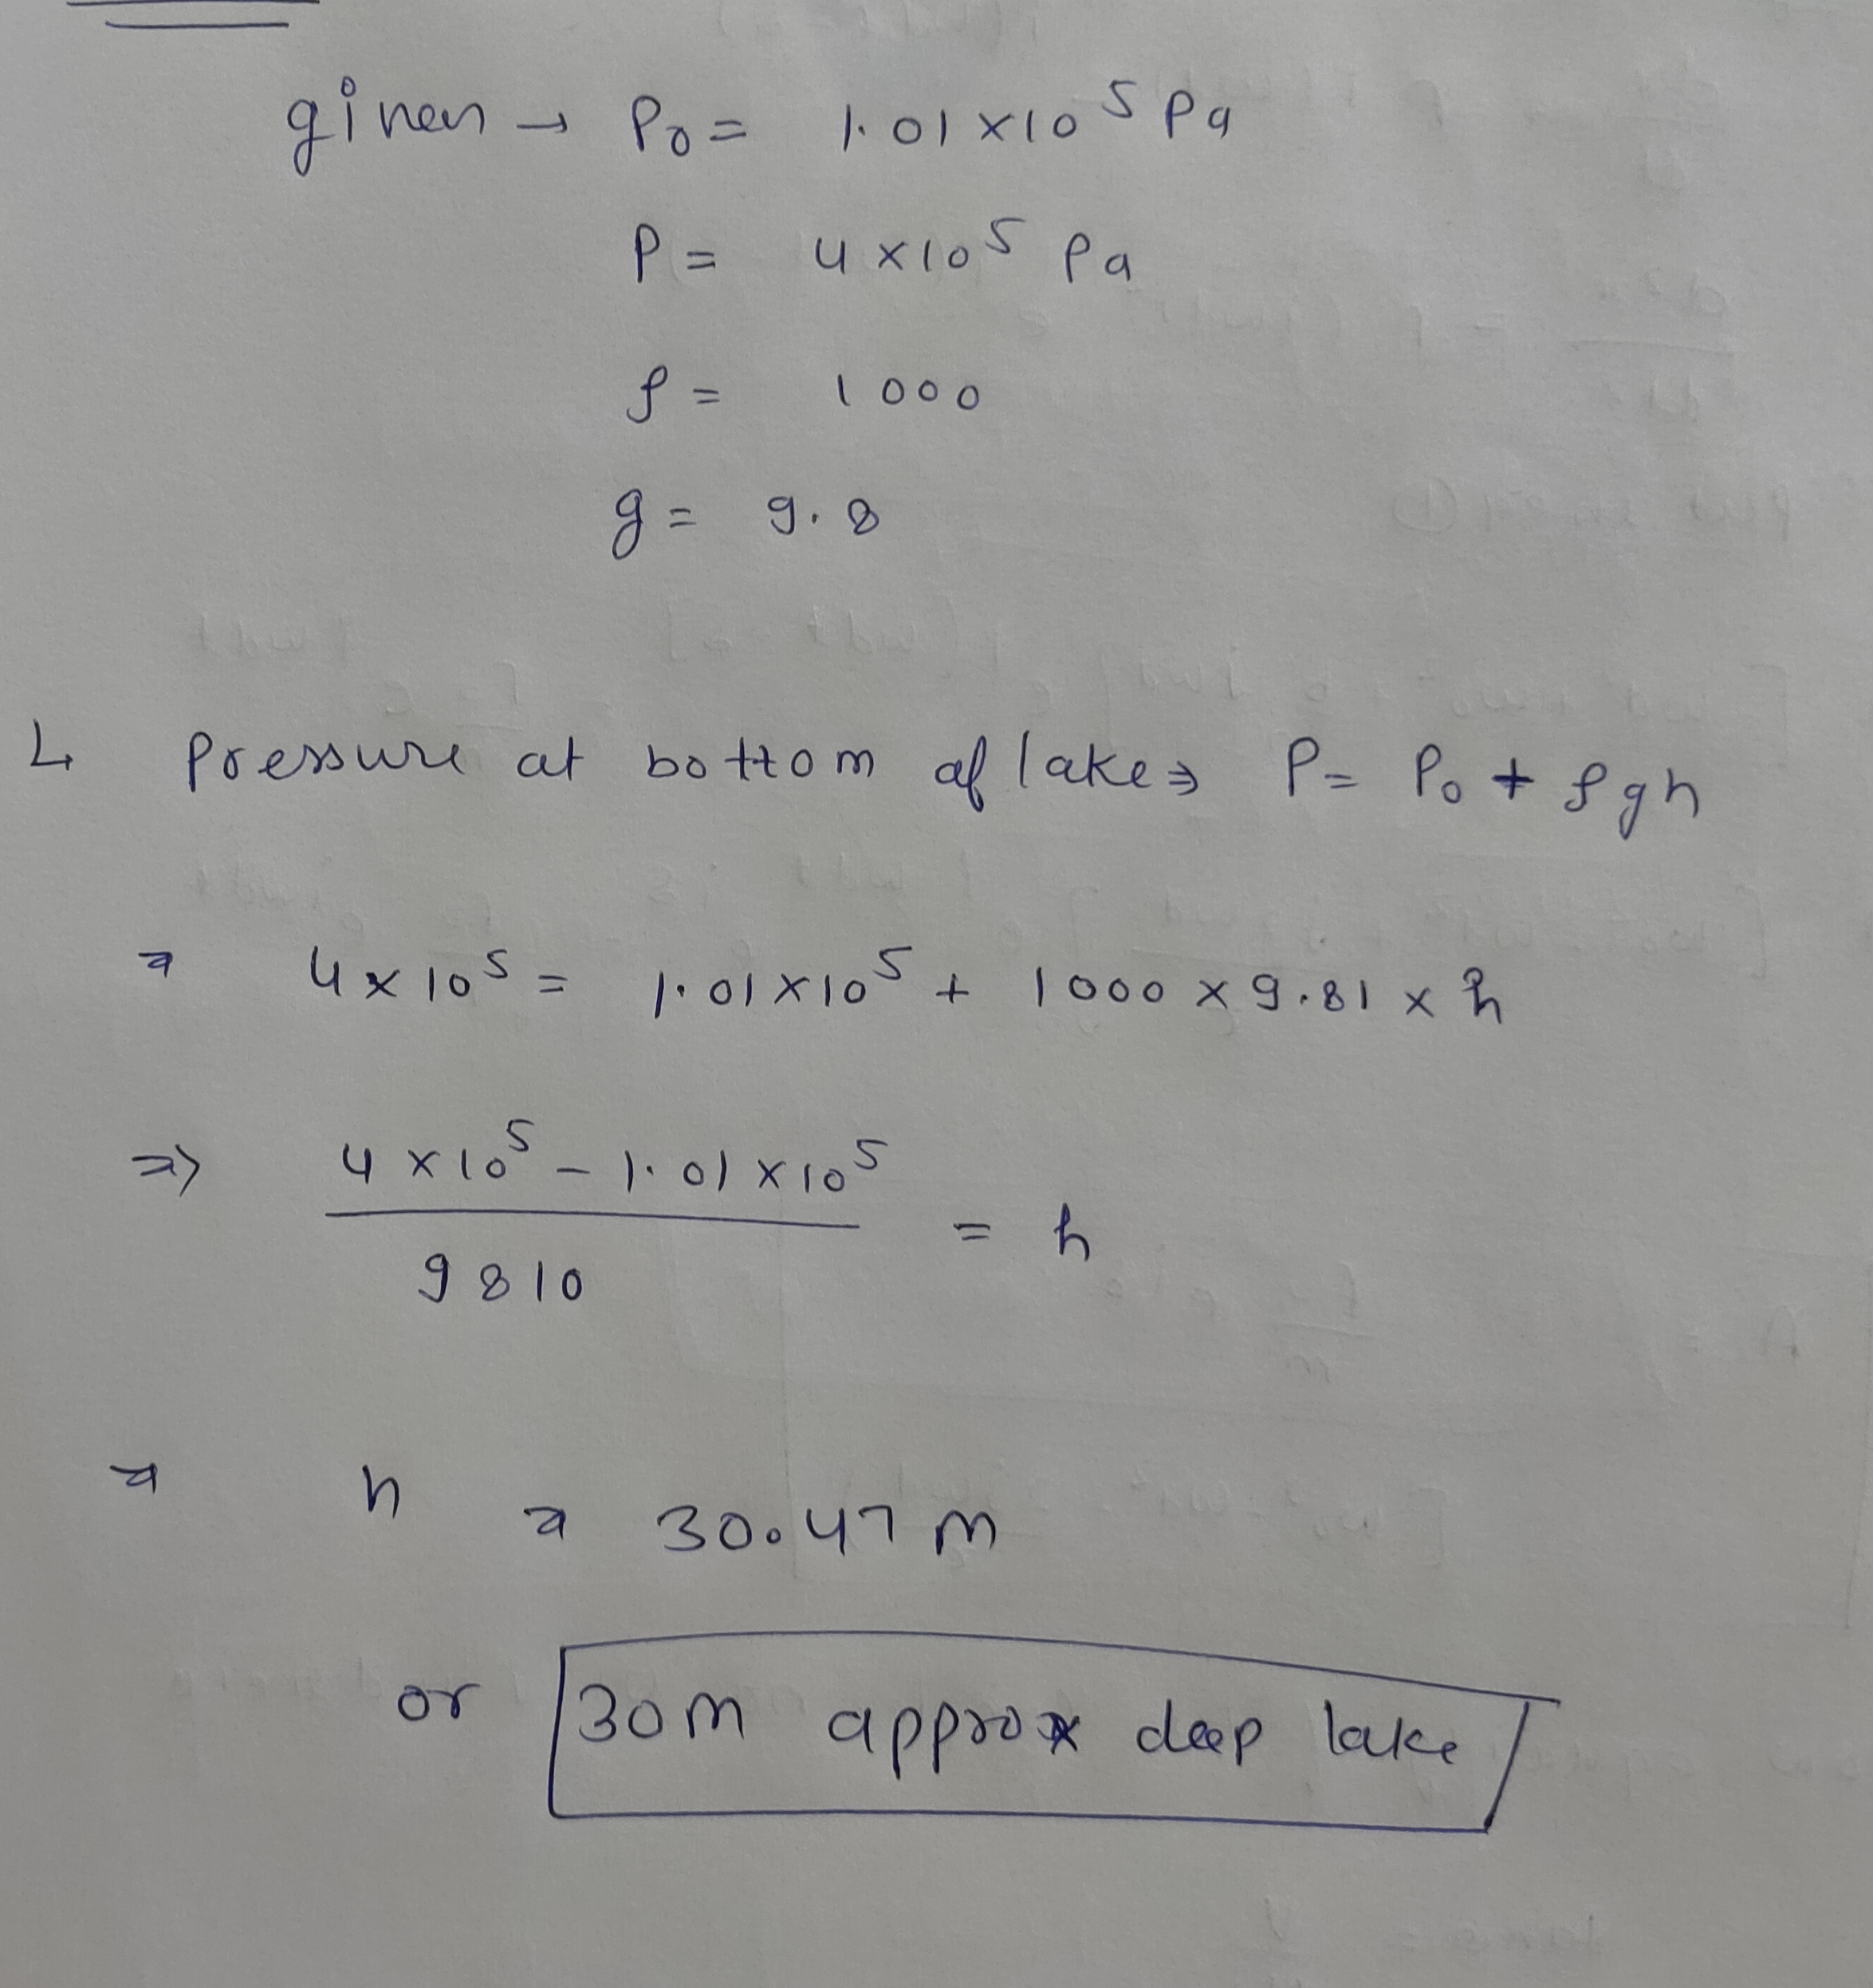 given → P₀ = 1.01 × 10⁵ Pa
P = 4 × 10⁵ Pa
ρ = 1000
g = 9.8
↳ Pressure at bottom of lake ⇒ P = P₀ + ρgh
⇒ 4 × 10⁵ = 1.01 × 10⁵ + 1000 × 9.81 × h
⇒ 4 × 10⁵ - 1.01 × 10⁵ / 9810 = h
⇒ h ⇒ 30.47 m
or 30m approx deep lake